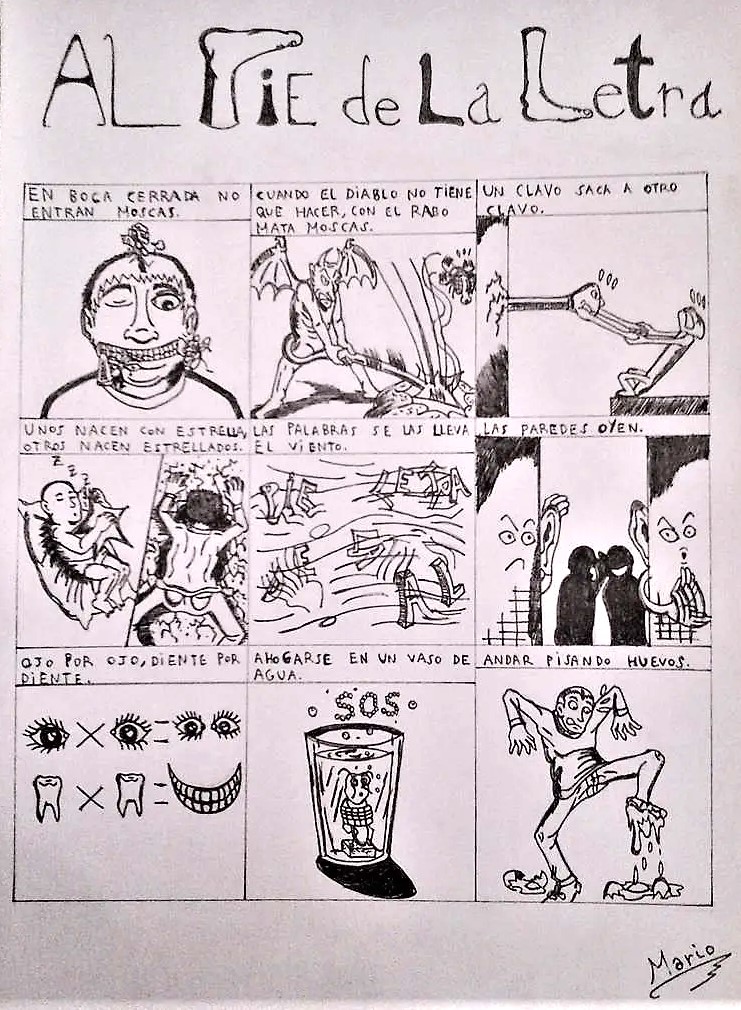 AL PiE de La Letra
EN BOCA CERRADA NO
ENTRAN MOSCAS.
CUANDO EL DiABLO NO TiENE
QUE HACER, CON EL RABO
MATA MOSCAS.
UN CLAVO SACA A OTRO
CLAVO.
UNOS NACEN CON ESTRELLA,
OTROS NACEN ESTRELLADOS.
Z
Z
Z
LAS PALABRAS SE LAS LLEVA
EL ViENTO.
PiE
LETRA
LAS PAREDES OYEN.
OJO POR OJO, DiENTE POR
DiENTE.
× =
× =
AHOGARSE EN UN VASO DE
AGUA.
SOS
ANDAR PISANDO HUEVOS.
Mario